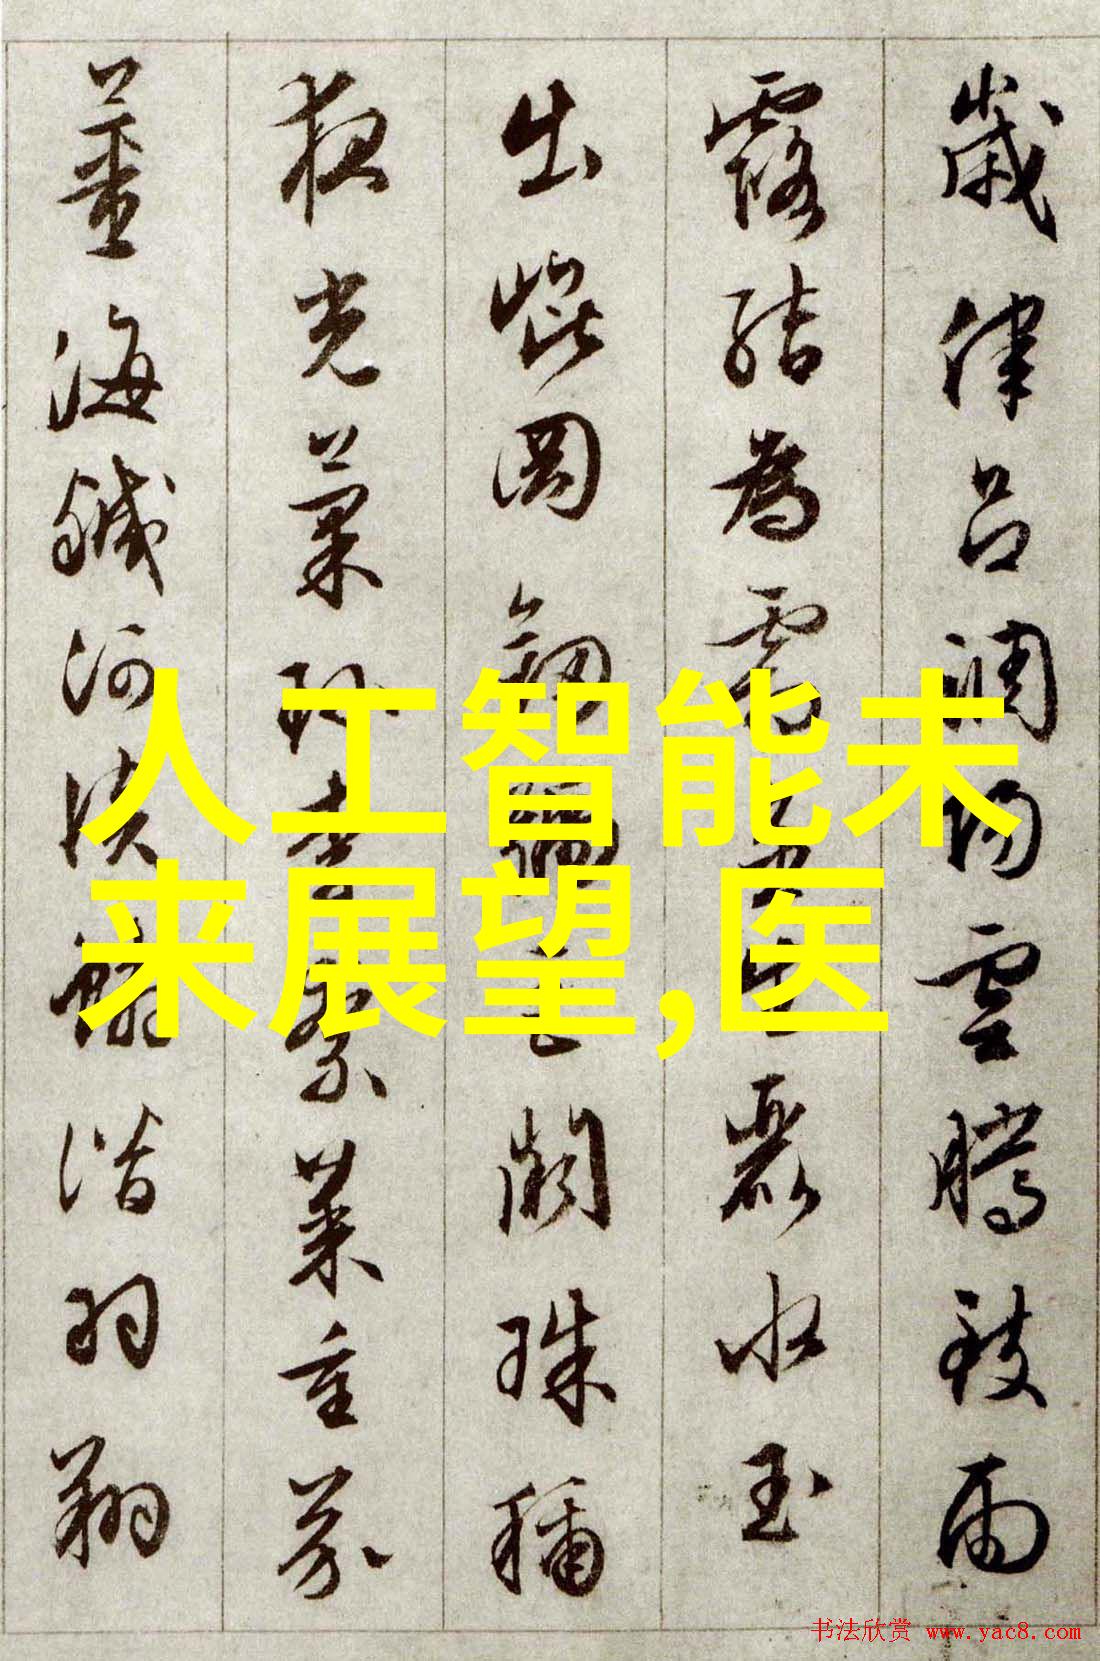 歲律呂調陽雲騰致雨
露結為霜金生麗水玉
出崐岡劒號巨闕珠稱
夜光菓珍李柰菜重芥
薑海鹹河淡鱗潛羽翔
人工智能未
来展望,医
书法欣赏 www.yac8.com